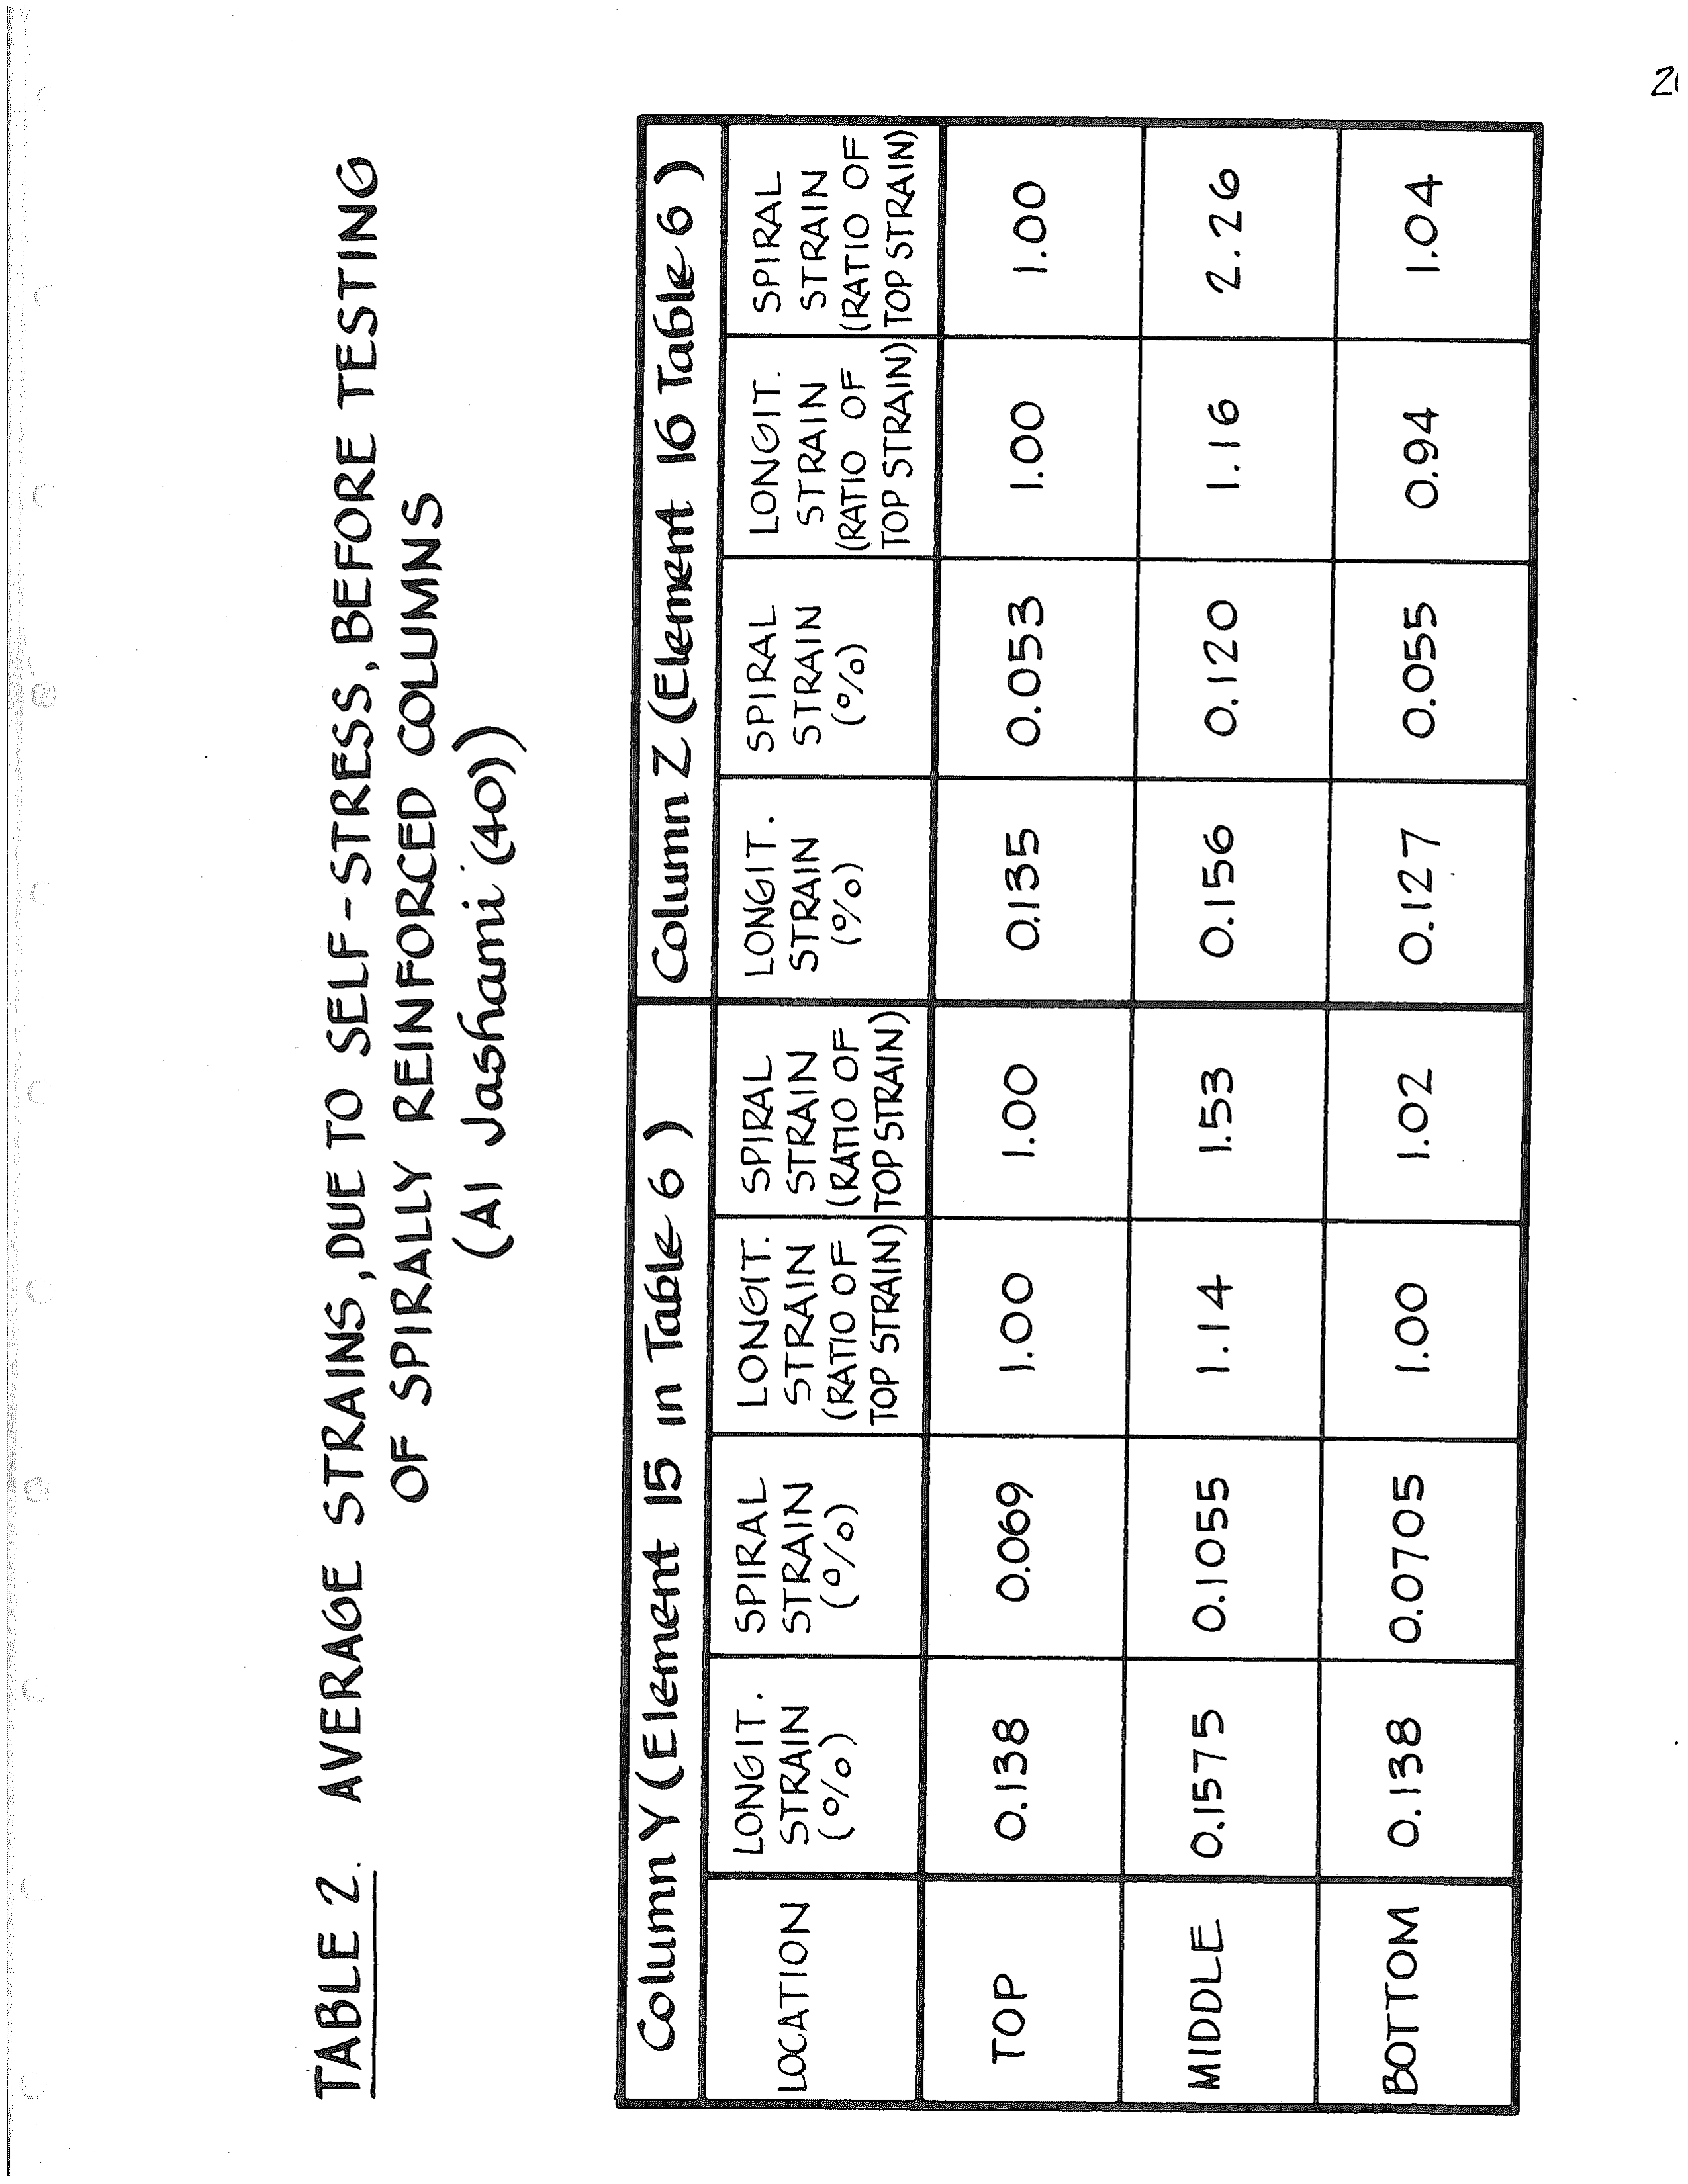 TABLE 2. AVERAGE STRAINS, DUE TO SELF-STRESS, BEFORE TESTING
OF SPIRALLY REINFORCED COLUMNS
(Al Jashami (40))
Column Y (Element 15 in Table 6) Column Z (Element 16 Table 6)
LOCATION LONGIT. STRAIN (%) SPIRAL STRAIN (%) LONGIT. STRAIN (RATIO OF TOP STRAIN) SPIRAL STRAIN (RATIO OF TOP STRAIN) LONGIT. STRAIN (%) SPIRAL STRAIN (%) LONGIT. STRAIN (RATIO OF TOP STRAIN) SPIRAL STRAIN (RATIO OF TOP STRAIN)
TOP 0.138 0.069 1.00 1.00 0.135 0.053 1.00 1.00
MIDDLE 0.1575 0.1055 1.14 1.53 0.156 0.120 1.16 2.26
BOTTOM 0.138 0.0705 1.00 1.02 0.127 0.055 0.94 1.04